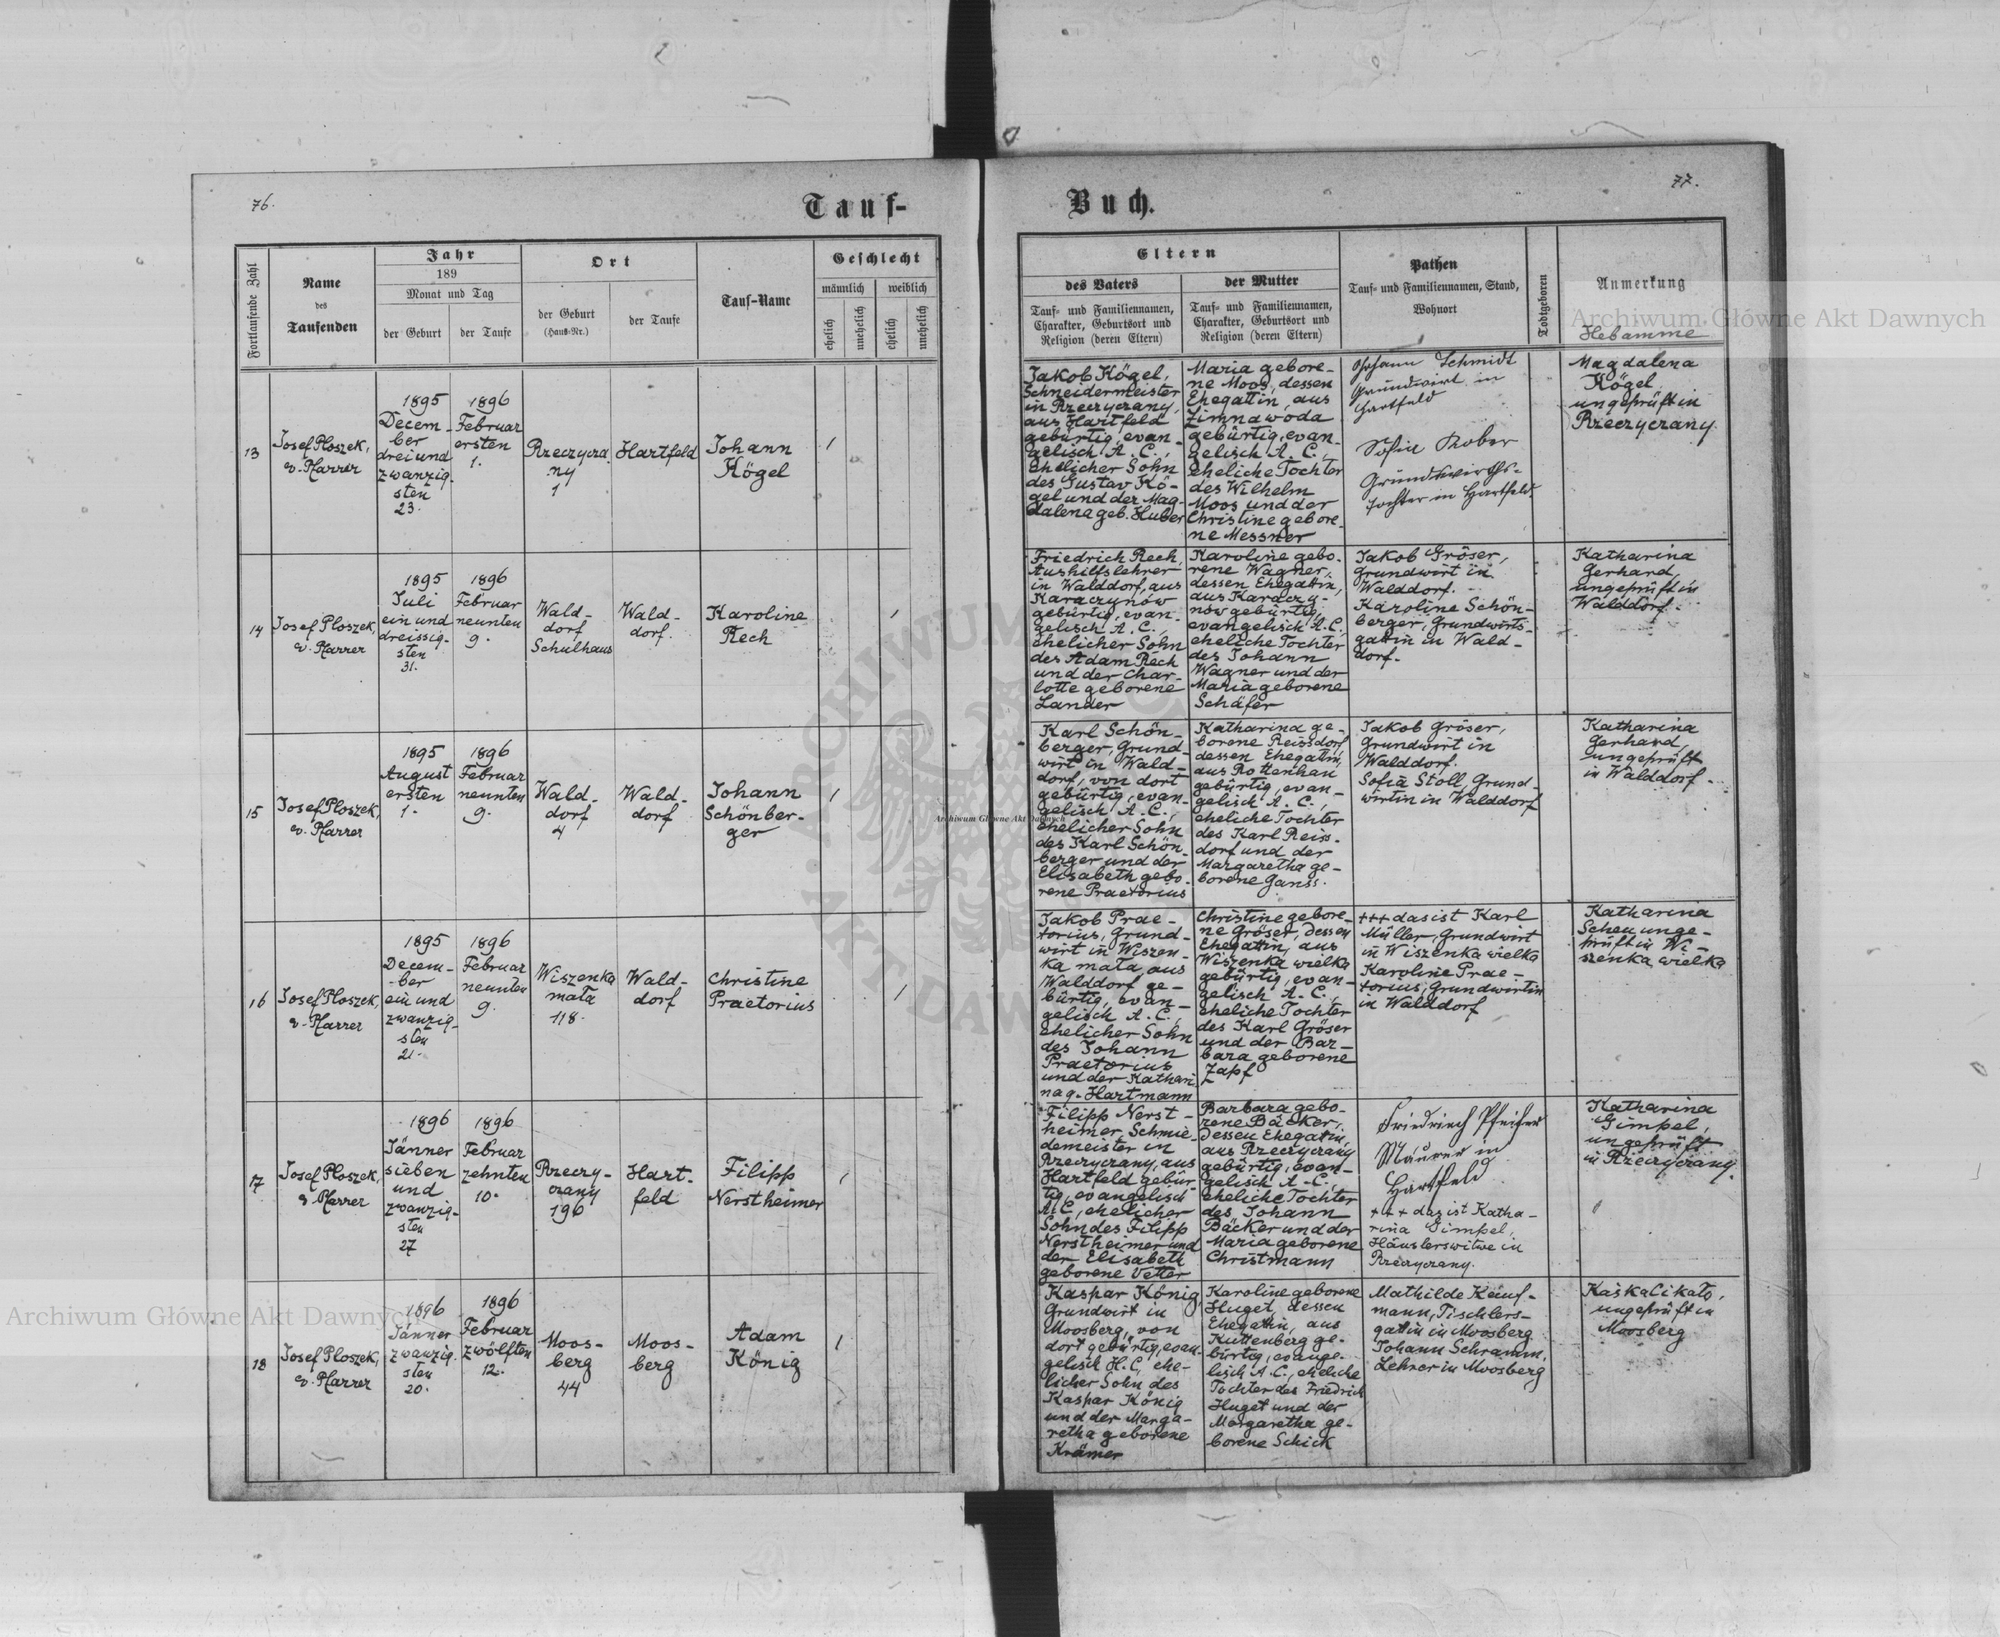 76.
Tauf-
Fortlaufende Zahl
Name
des
Taufenden
Jahr
189
Monat und Tag
der Geburt
der Taufe
Ort
der Geburt
(Haus-Nr.)
der Taufe
Tauf-Name
Geschlecht
männlich
weiblich
ehelich
unehelich
ehelich
unehelich
13
Josef Ploszek,
ev. Pfarrer
1895
Decem-
ber
drei und
zwanzig-
sten
23.
1896
Februar
ersten
1.
Rzeczyca-
ny
1
Hartfeld
Johann
Kögel
1
14
Josef Ploszek,
ev. Pfarrer
1895
Juli
ein und
dreissig-
sten
31.
1896
Februar
neunten
9.
Wald-
dorf
Schulhaus
Wald-
dorf.
Karoline
Rech
1
15
Josef Ploszek,
ev. Pfarrer
1895
August
ersten
1.
1896
Februar
neunten
9.
Wald-
dorf
4
Wald-
dorf
Johann
Schönber-
ger
1
16
Josef Ploszek,
ev. Pfarrer
1895
Decem-
ber
ein und
zwanzig-
sten
21.
1896
Februar
neunten
9.
Wiszenka
mała
118.
Wald-
dorf
Christine
Praetorius
1
17
Josef Ploszek,
ev. Pfarrer
1896
Jänner
sieben
und
zwanzig-
sten
27
1896
Februar
zehnten
10.
Rzeczy-
czany
196
Hart-
feld
Filipp
Nerstheimer
1
18
Josef Ploszek,
ev. Pfarrer
1896
Jänner
zwanzig-
sten
20.
1896
Februar
zwölften
12.
Moos-
berg
44
Moos-
berg
Adam
König
1
77.
Buch.
Eltern
des Vaters
Tauf- und Familiennamen,
Charakter, Geburtsort und
Religion (deren Eltern)
der Mutter
Tauf- und Familiennamen,
Charakter, Geburtsort und
Religion (deren Eltern)
Pathen
Tauf- und Familiennamen, Stand,
Wohnort
Todtgeboren
Anmerkung
Hebamme
Jakob Kögel,
Schneidermeister
in Rzeczyczany,
aus Hartfeld
gebürtig, evan-
gelisch A. C.,
ehelicher Sohn
des Gustav Kö-
gel und der Mag-
dalena geb. Huber
Maria gebore-
ne Moos, dessen
Ehegattin, aus
Zimnawoda
gebürtig, evan-
gelisch A. C.,
eheliche Tochter
des Wilhelm
Moos und der
Christine gebore-
ne Messner
Johann Schmidt
Grundwirt in
Hartfeld
Sofie Kober
Grundwirths-
tochter in Hartfeld.
Magdalena
Kögel
ungeprüft in
Rzeczyczany.
Friedrich Rech,
Aushilfslehrer
in Walddorf, aus
Karaczynow
gebürtig, evan-
gelisch A. C.,
ehelicher Sohn
des Adam Rech
und der Char-
lotte geborene
Lander
Karoline gebo-
rene Wagner,
dessen Ehegattin,
aus Karaczy-
now gebürtig,
evangelisch A. C.,
eheliche Tochter
des Johann
Wagner und der
Maria geborene
Schäfer
Jakob Gröser,
Grundwirt in
Walddorf.
Karoline Schön-
berger, Grundwirts-
gattin in Wald-
dorf.
Katharina
Gerhard,
ungeprüft in
Walddorf.
Karl Schön-
berger, Grund-
wirt in Wald-
dorf, von dort
gebürtig, evan-
gelisch A. C.,
ehelicher Sohn
des Karl Schön-
berger und der
Elisabeth gebo-
rene Praetorius
Katharina ge-
borene Reissdorf,
dessen Ehegattin,
aus Rottenhan
gebürtig, evan-
gelisch A. C.,
eheliche Tochter
des Karl Reiss-
dorf und der
Margaretha ge-
borene Ganss.
Jakob Gröser,
Grundwirt in
Walddorf.
Sofia Stoll, Grund-
wirtin in Walddorf
Katharina
Gerhard,
ungeprüft
in Walddorf.
Jakob Prae-
torius, Grund-
wirt in Wiszen-
ka mała, aus
Walddorf ge-
bürtig, evan-
gelisch A. C.,
ehelicher Sohn
des Johann
Praetorius
und der Kathari
na g. Hartmann
Christine gebore-
ne Gröser, dessen
Ehegattin, aus
Wiszenka wielka
gebürtig, evan-
gelisch A. C.,
eheliche Tochter
des Karl Gröser
und der Bar-
bara geborene
Zapf
+++ das ist Karl
Müller, Grundwirt
in Wiszenka wielka
Karoline Prae-
torius, Grundwirtin
in Walddorf
Katharina
Scheu unge-
prüft in Wi-
szenka wielka
Filipp Nerst-
heimer, Schmie-
demeister in
Rzeczyczany, aus
Hartfeld gebür-
tig, evangelisch
A. C., ehelicher
Sohn des Filipp
Nerstheimer und
der Elisabeth
geborene Vetter
Barbara gebo-
rene Bäcker,
dessen Ehegattin,
aus Rzeczyczany
gebürtig, evan-
gelisch A. C.,
eheliche Tochter
des Johann
Bäcker und der
Maria geborene
Christmann
Friedrich Pfeifer
Maurer in
Hartfeld
+++ das ist Katha-
rina Gimpel,
Häuslerswitwe in
Rzeczyczany.
Katharina
Gimpel,
ungeprüft
in Rzeczyczany.
Kaspar König,
Grundwirt in
Moosberg, von
dort gebürtig, evan-
gelisch H. C., ehe-
licher Sohn des
Kaspar König
und der Marga-
retha geborene
Krämer
Karoline geborene
Huget, dessen
Ehegattin, aus
Kuttenberg ge-
bürtig, evange-
lisch A. C., eheliche
Tochter des Friedrich
Huget und der
Margaretha ge-
borene Schick
Mathilde Kauf-
mann, Tischlers-
gattin in Moosberg
Johann Schramm,
Lehrer in Moosberg
ungeprüft in
Moosberg
Archiwum Główne Akt Dawnych
Archiwum Główne Akt Dawnych
Archiwum Główne Akt Dawnych